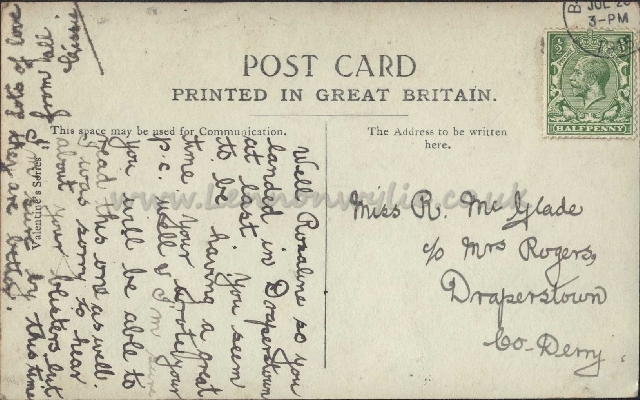 B
JUL 26
3-PM
POST CARD
PRINTED IN GREAT BRITAIN.
HALFPENNY
This space may be used for Communication.
The Address to be written
here.
Valentine's Series
Well Rosaline so you
landed in Draperstown
at last. You seem
to be having a great
time your wrote your
p.c. well & I'm sure
you will be able to
read this one as well.
I was sorry to hear
about your blisters but
I'm sure by this time
they are better.
lots of love
from all
Cissie
Miss R. Mc Glade
c/o Mrs Rogers,
Draperstown
Co-Derry